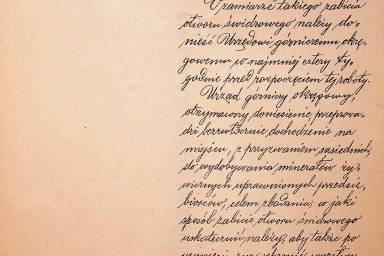 O zamiarze takiego zabicia
otworu świdrowego należy do-
nieść Urzędowi górniczemu okrę-
gowemu co najmniej cztery ty-
godnie przed rozpoczęciem tej roboty.
Urząd górniczy okręgowy,
otrzymawszy doniesienie, przeprowa-
dzi bezzwłocznie dochodzenie na
miejscu, z przyzwaniem sąsiednich
do wydobywania minerałów ży-
wicznych uprawnionych przedsię-
biorców, celem zbadania, w jaki
sposób zabicie otworu świdrowego
uskutecznić należy, aby także po